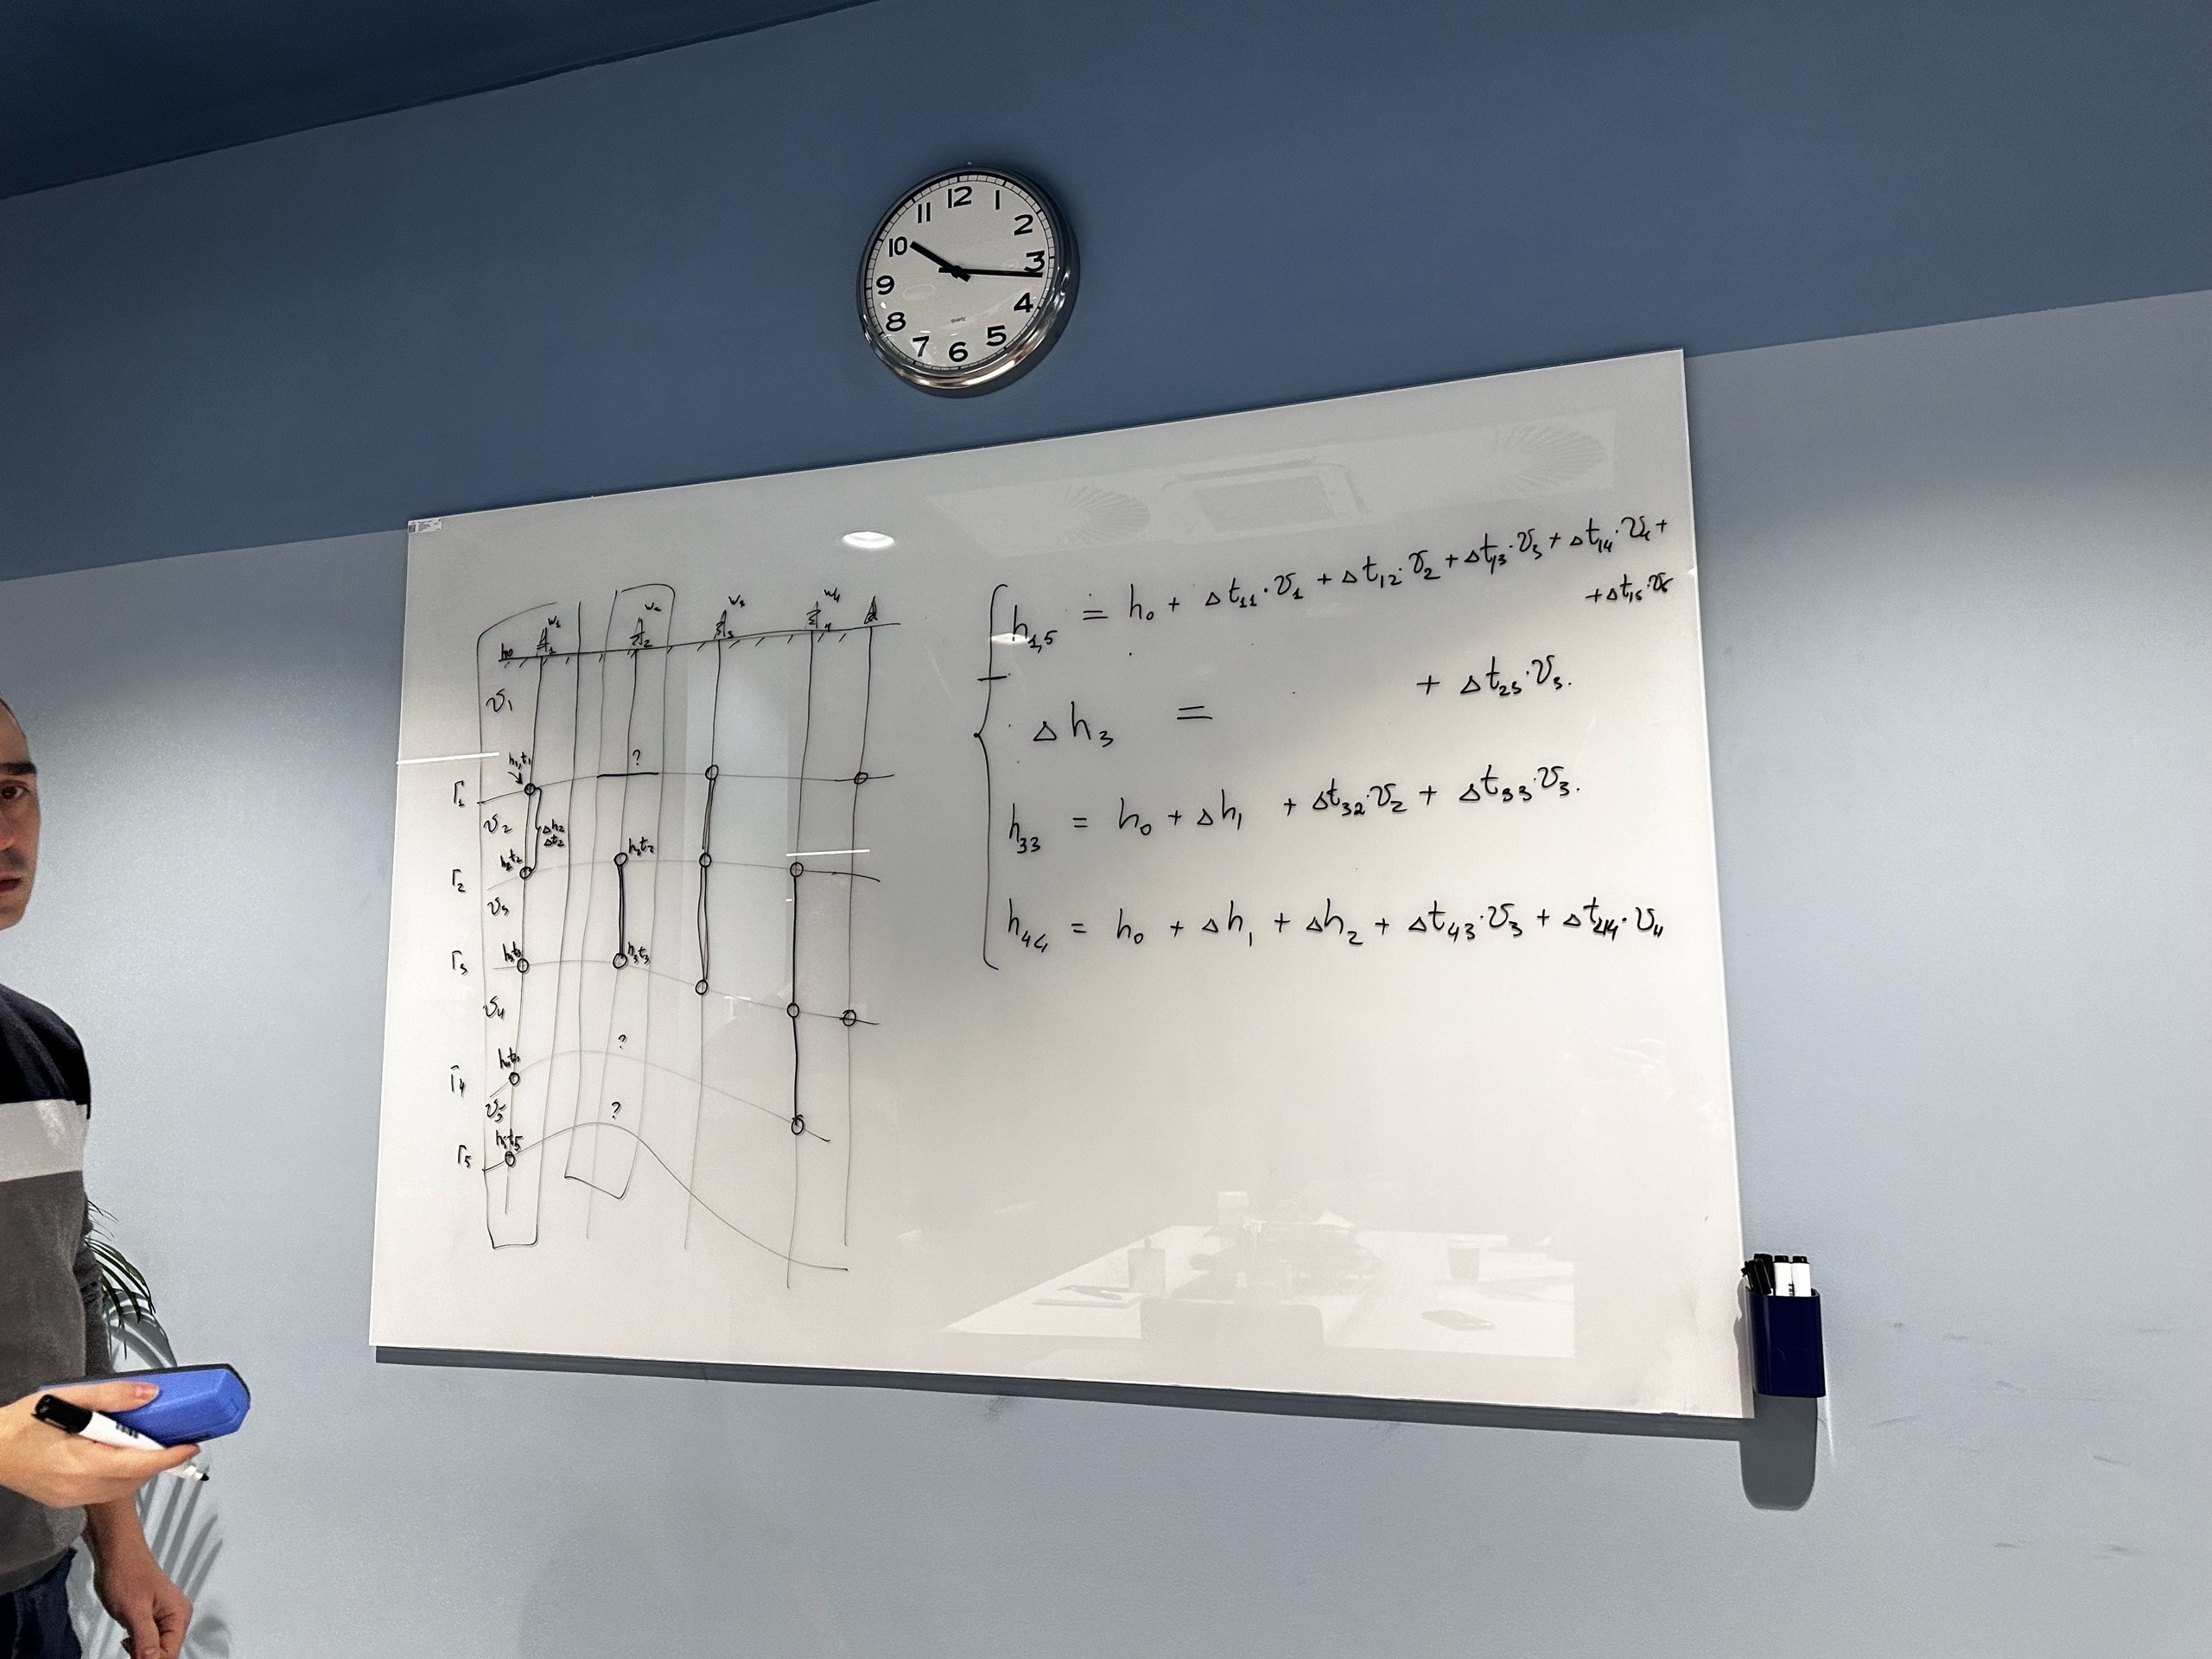 12
1
2
3
4
5
6
7
8
9
10
11
quartz
w₁ w₂ w₃ w₄
h₀ 1 2 3 4
v₁
?
h₁,t₁
Γ₁
v₂
Δh₂
Δt₂
h₂t₂ h₂t₂
Γ₂
v₃
h₃t₃ h₃t₃
Γ₃
v₄
?
h₄t₄
Γ₄
v₅
?
h₅t₅
Γ₅
h₁,₅ = h₀ + Δt₁₁·v₁ + Δt₁₂·v₂ + Δt₁₃·v₃ + Δt₁₄·v₄ +
+ Δt₁₅·v₅
Δh₃ = + Δt₂₃·v₃.
h₃₃ = h₀ + Δh₁ + Δt₃₂·v₂ + Δt₃₃·v₃.
h₄₄ = h₀ + Δh₁ + Δh₂ + Δt₄₃·v₃ + Δt₄₄·v₄